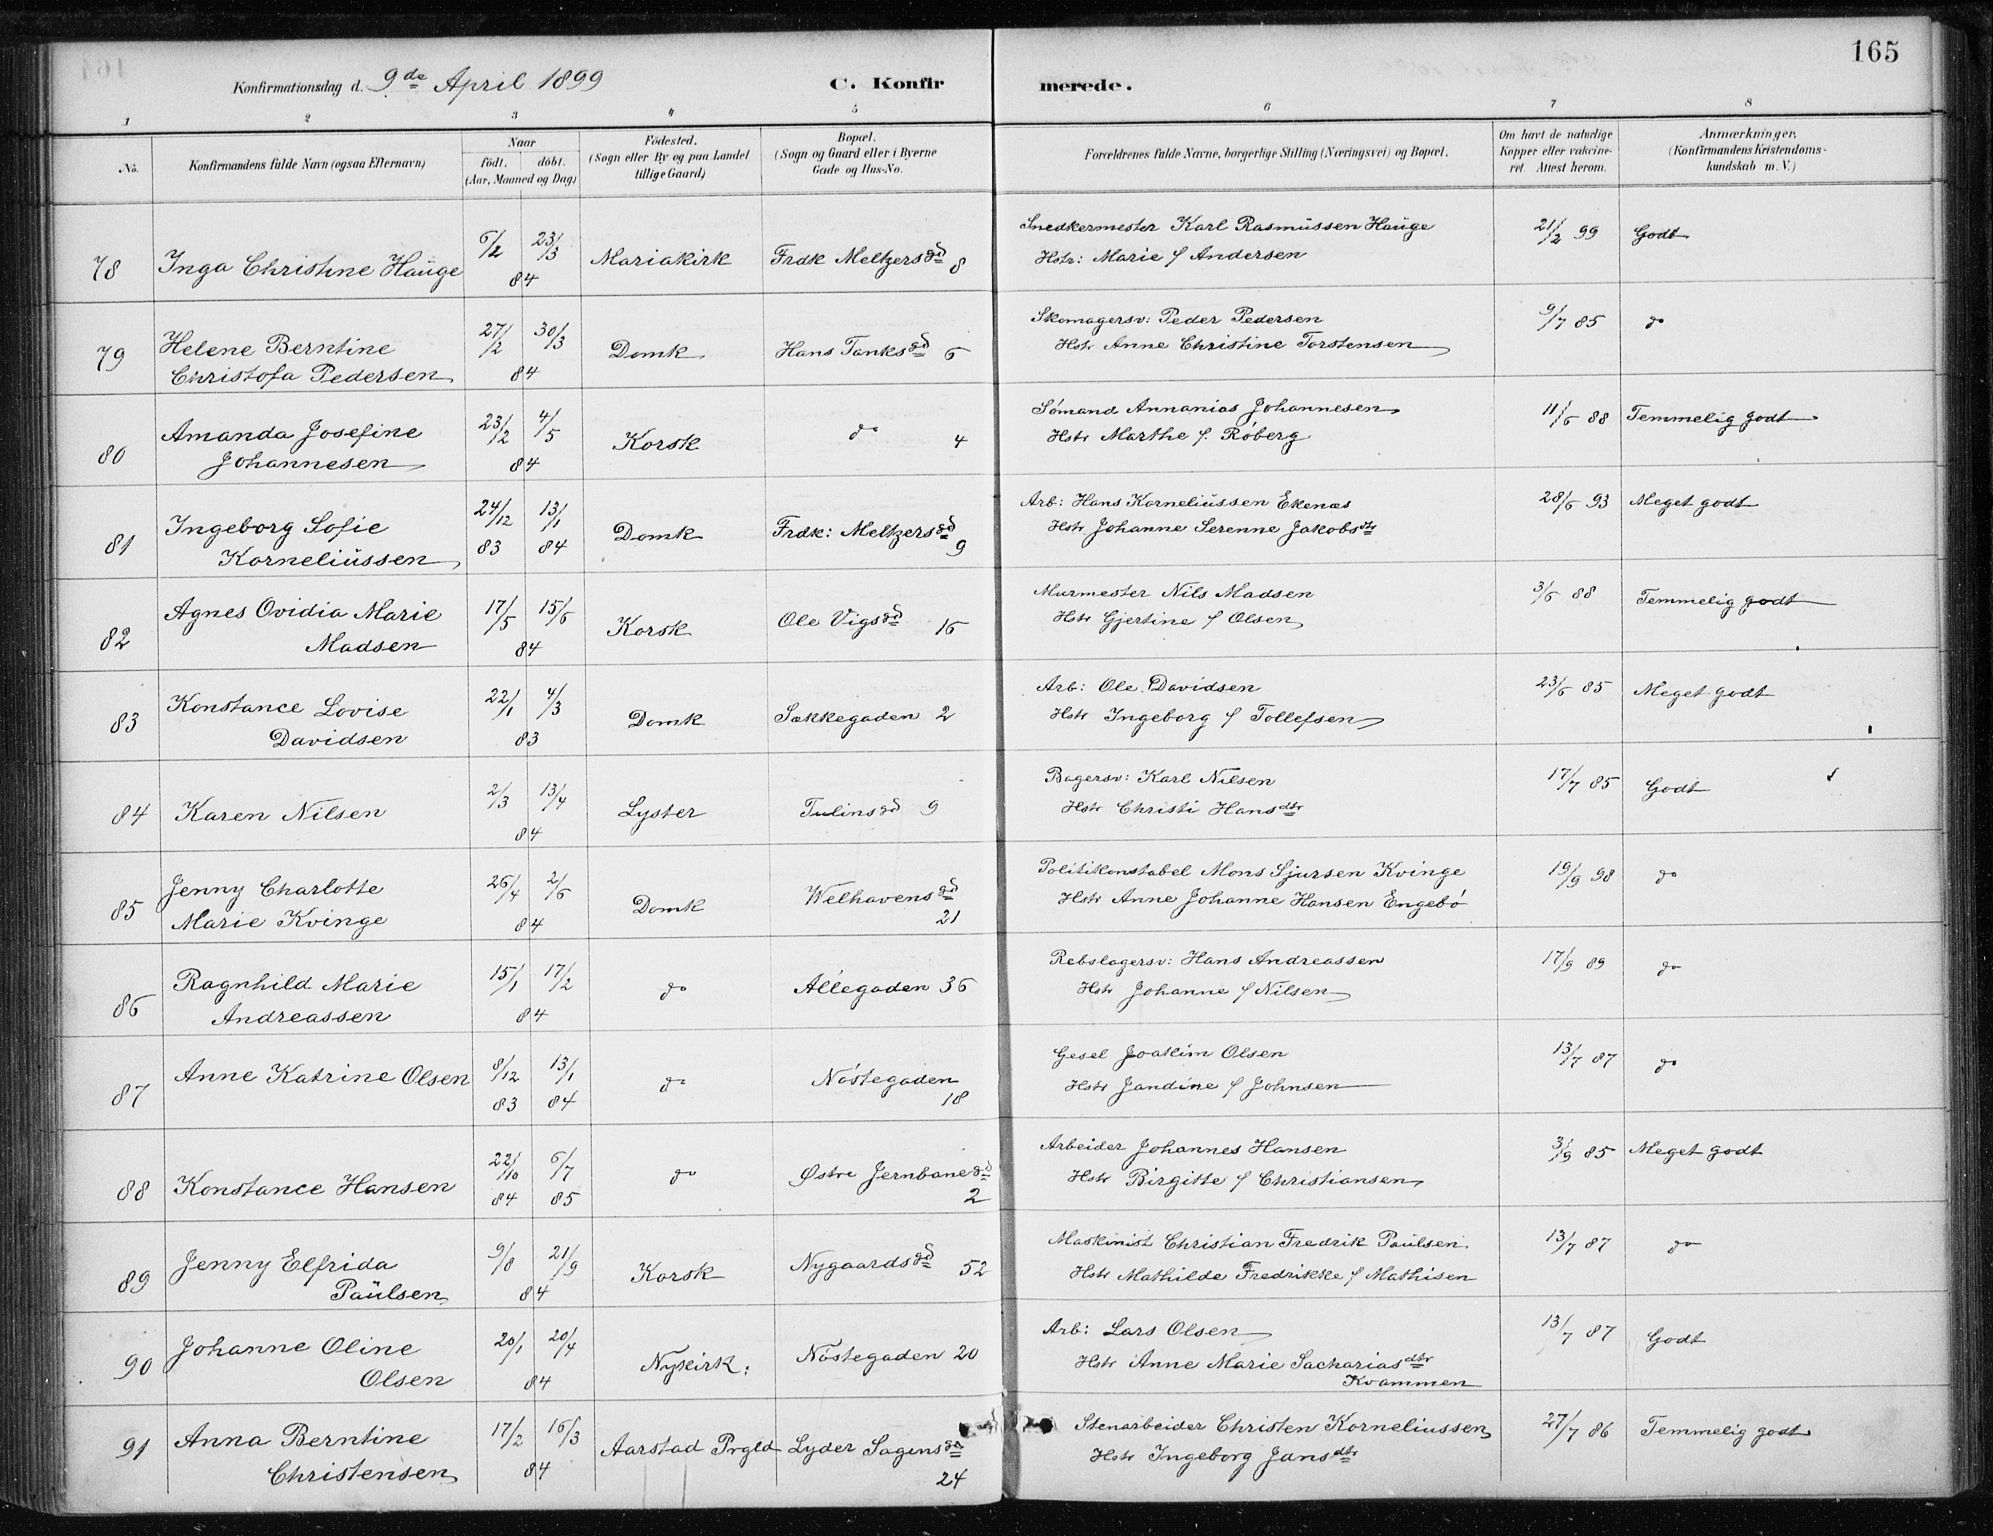 165
Konfirmationsdag d. 9de April 1899 C. Konfir merede.
1 2 3 4 5 6 7 8
No. Konfirmandens fulde Navn (ogsaa Efternavn) Naar födt. döbt. (Aar, Maaned og Dag) Födested. (Sogn eller By og paa Landet tillige Gaard) Bopæl. (Sogn og Gaard eller i Byerne Gade og Hus-No. Forældrenes fulde Navne, borgerlige Stilling (Næringsvei) og Bopæl. Om havt de naturlige Kopper eller vakcineret. Attest herom. Anmærkninger, (Konfirmandens Kristendomskundskab m. V.)
78 Inga Christine Hauge 6/2 23/3 84 Mariakirk Frdk Meltzersgd 8 Snedkermester Karl Rasmussen Hauge
Hstr: Marie f Andersen 21/2 99 Godt
79 Helene Berntine
Christofa Pedersen 27/2 30/3 84 Domk Hans Tanksgd 6 Skomagersv: Peder Pedersen
Hstr Anne Christine Torstensen 9/7 85 do
80 Amanda Josefine
Johannesen 23/2 4/5 84 Korsk do 4 Sömand Annanias Johannesen
Hstr Marthe f. Röberg 11/6 88 Temmelig godt
81 Ingeborg Sofie
Korneliussen 24/12 83 13/1 84 Domk Frdk: Meltzersgd 9 Arb: Hans Korneliussen Ekenæs
Hstr Johanne Serenne Jakobsdtr 28/6 93 Meget godt
82 Agnes Ovidia Marie
Madsen 17/5 15/6 84 Korsk Ole Vigsgd 16 Murmester Nils Madsen
Hstr Gjertine f Olsen 3/6 88 Temmelig godt
83 Konstance Lovise
Davidsen 22/1 4/3 83 Domk Sækkegaden 2 Arb: Ole Davidsen
Hstr Ingeborg f Tollefsen 23/6 85 Meget godt
84 Karen Nilsen 2/3 13/4 84 Lyster Tulinsgd 9 Bagersv: Karl Nilsen
Hstr Christi Hansdtr 17/7 85 Godt
85 Jenny Charlotte
Marie Kvinge 26/4 2/6 84 Domk Welhavensgd 21 Politikonstabel Mons Sjursen Kvinge
Hstr Anne Johanne Hansen Engebö 19/9 98 do
86 Ragnhild Marie
Andreassen 15/1 17/2 84 do Allégaden 36 Rebslagersv: Hans Andreassen
Hstr Johanne f Nilsen 17/9 89 do
87 Anne Katrine Olsen 8/12 83 13/1 84 do Nöstegaden 18 Gesel Joakim Olsen
Hstr Jandine f Johnsen 13/7 87 do
88 Konstance Hansen 22/10 84 6/7 85 do Østre Jernbanegd 2 Arbeider Johannes Hansen
Hstr Birgitte f Christiansen 3/9 85 Meget godt
89 Jenny Elfrida
Paulsen 9/8 21/9 84 Korsk Nygaardsgd 52 Maskinist Christian Fredrik Paulsen
Hstr Mathilde Fredrikke f Mathisen 13/7 87 do
90 Johanne Oline
Olsen 20/1 20/4 84 Nykirk: Nöstegaden 20 Arb: Lars Olsen
Hstr Anne Marie Sachariasdtr
Kvammen 13/7 87 Godt
91 Anna Berntine
Christensen 17/2 16/3 84 Aarstad Prgld Lyder Sagensgd 24 Stenarbeider Christen Korneliussen
Hstr Ingeborg Jansdtr 27/7 86 Temmelig godt